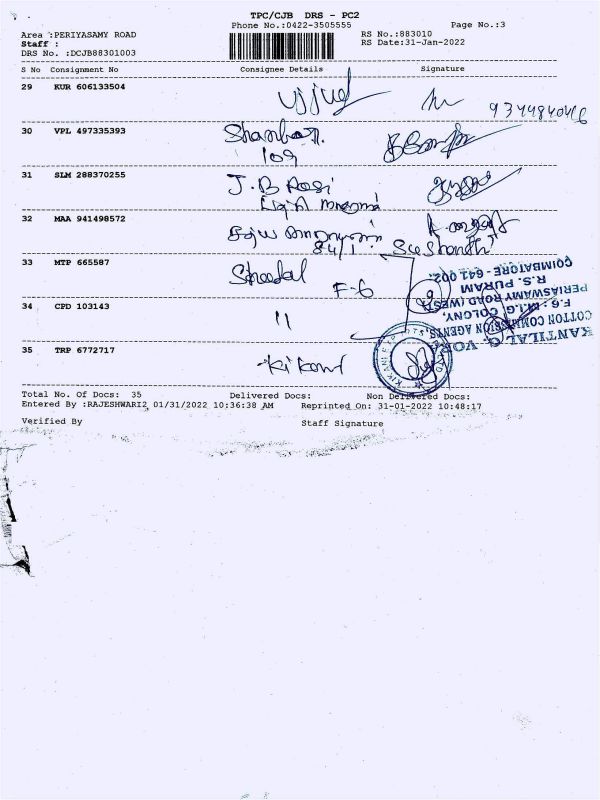 TPC/CJB DRS - PC2
Phone No.:0422-3505555
Page No.:3
Area :PERIYASAMY ROAD
RS No.:883010
Staff :
RS Date:31-Jan-2022
DRS No. :DCJB88301003
S No Consignment No Consignee Details Signature
29 KUR 606133504
9344840466
30 VPL 497335393
109
31 SLM 288370255 J.B Rasi
32 MAA 941498572
84/1.
33 MTP 665587 Sheetal F-6
34 CPD 103143 11
35 TRP 6772717 Kikani
KANTILAL G. VORA
COTTON COMMISSION AGENTS,
F.6, M.I.G. COLONY,
PERIASWAMY ROAD (WEST)
R.S. PURAM
COIMBATORE - 641 002.
Total No. Of Docs: 35 Delivered Docs: Non Delivered Docs:
Entered By :RAJESHWARI2 01/31/2022 10:36:38 AM Reprinted On: 31-01-2022 10:48:17
Verified By Staff Signature